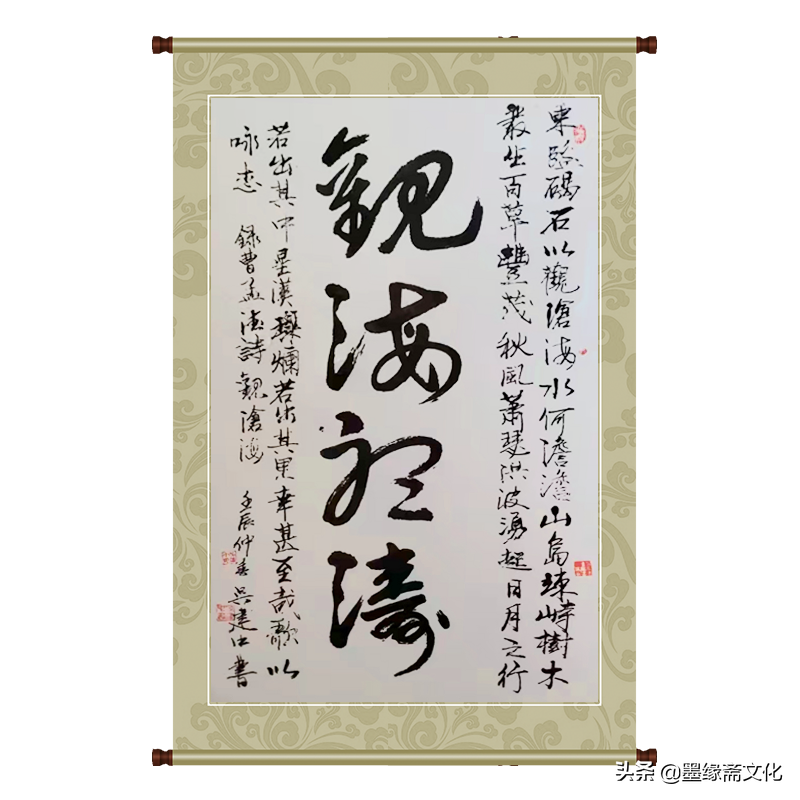 東臨碣石以觀滄海水何澹澹山島竦峙樹木
叢生百草豐茂秋風蕭瑟洪波湧起日月之行
觀海聽濤
若出其中星漢燦爛若出其裏幸甚至哉歌以
詠志 錄曹孟德詩觀滄海 壬辰仲春吳建中書
头条 @墨缘斋文化